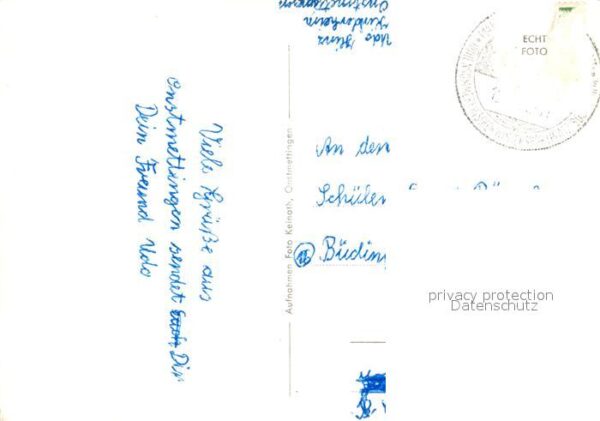 Viele Grüße aus
Onstmettingen sendet Dir
Dein Freund Udo
Aufnahmen Foto Keinath, Onstmettingen
Udo
Kinderheim
Onstmettingen
ECHT
FOTO
An den
Schüler
Büdin
privacy protection
Datenschutz